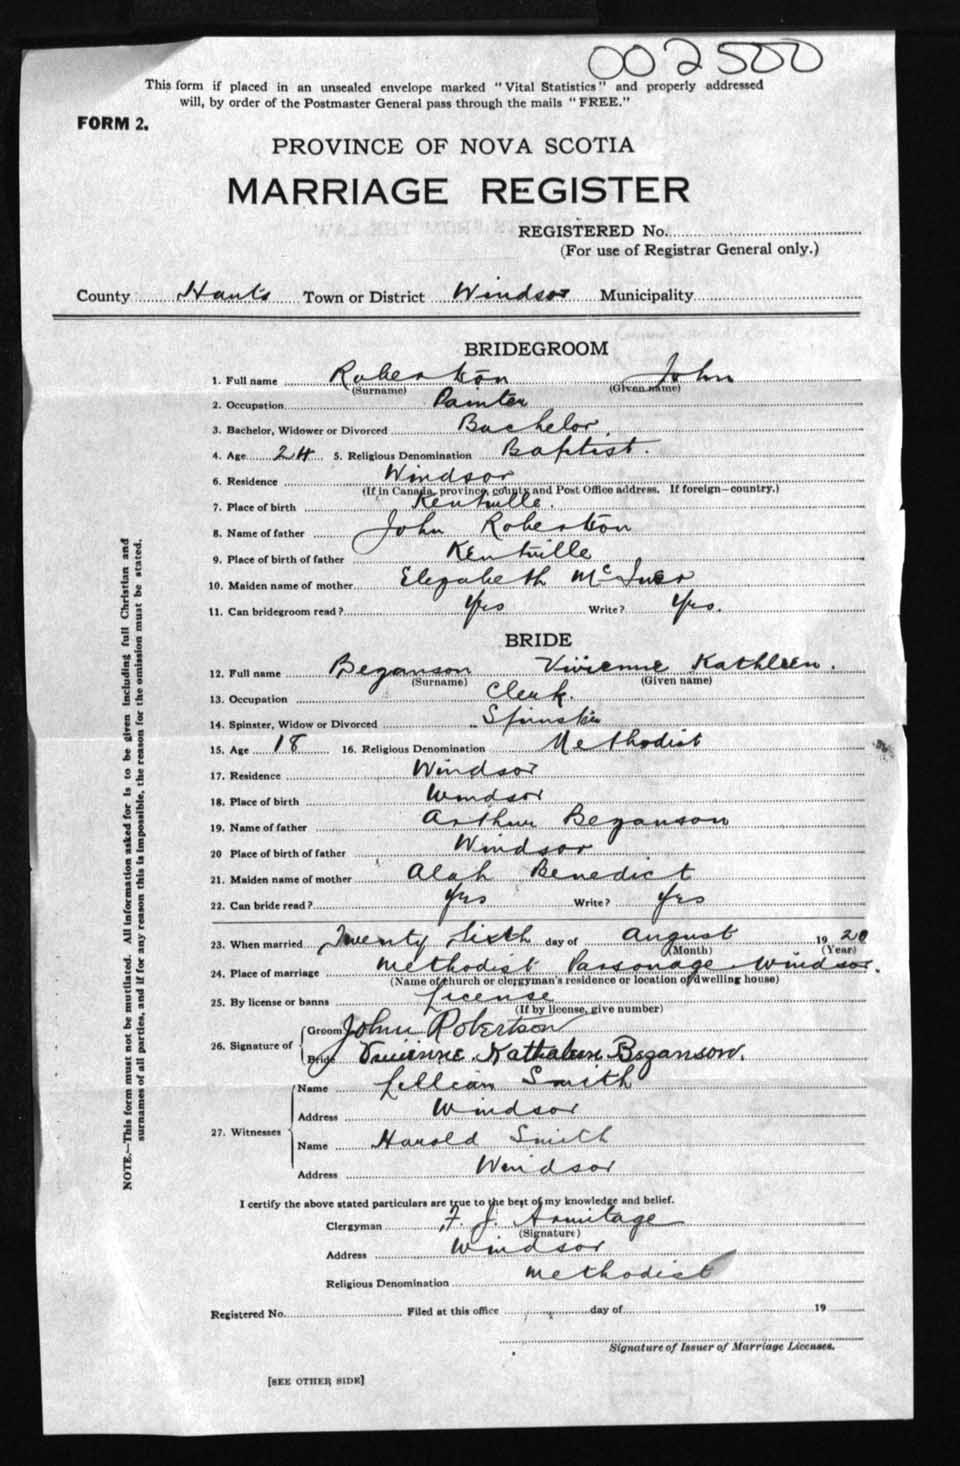 002500
This form if placed in an unsealed envelope marked "Vital Statistics" and properly addressed
will, by order of the Postmaster General pass through the mails "FREE."
FORM 2.
PROVINCE OF NOVA SCOTIA
MARRIAGE REGISTER
REGISTERED No.
(For use of Registrar General only.)
County Hants Town or District Windsor Municipality
BRIDEGROOM
1. Full name Robertson John
(Surname) (Given name)
2. Occupation Painter
3. Bachelor, Widower or Divorced Bachelor.
4. Age 24 5. Religious Denomination Baptist.
6. Residence Windsor
(If in Canada, province, county and Post Office address. If foreign—country.)
7. Place of birth Kentville.
8. Name of father John Robertson
9. Place of birth of father Kentville
10. Maiden name of mother Elizabeth
11. Can bridegroom read? Yes Write? Yes.
BRIDE
12. Full name Beganson Vivienne Kathleen.
(Surname) (Given name)
13. Occupation Clerk.
14. Spinster, Widow or Divorced Spinster
15. Age 18 16. Religious Denomination Methodist
17. Residence Windsor
18. Place of birth Windsor
19. Name of father Arthur Beganson
20 Place of birth of father Windsor
21. Maiden name of mother Alah Benedict
22. Can bride read? Yes Write? Yes
23. When married Twenty Sixth day of August 1920
(Month) (Year)
24. Place of marriage Methodist Parsonage Windsor.
(Name of church or clergyman's residence or location of dwelling house)
25. By license or banns License
(If by license, give number)
26. Signature of
Groom John Robertson
Bride Vivienne Kathaleen Beganson.
27. Witnesses
Name Lillian Smith
Address Windsor
Name Harold Smith
Address Windsor
I certify the above stated particulars are true to the best of my knowledge and belief.
Clergyman F. J. Armitage
(Signature)
Address Windsor
Religious Denomination Methodist
Registered No. Filed at this office day of 19
Signature of Issuer of Marriage Licenses.
[SEE OTHER SIDE]
NOTE.—This form must not be mutilated. All information asked for is to be given including full Christian and
surnames of all parties, and if for any reason this is impossible, the reason for the omission must be stated.